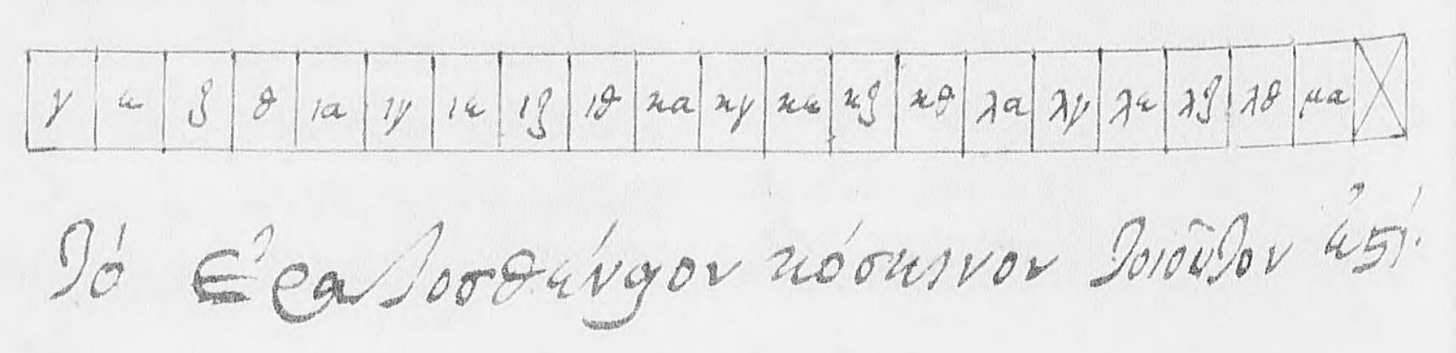 γ ε ζ θ ια ιγ ιε ιζ ιθ κα κγ κε κζ κθ λα λγ λε λζ λθ μα
Τό Ἐρατοσθένηον κόσκινον τοιοῦτον ἐστί.